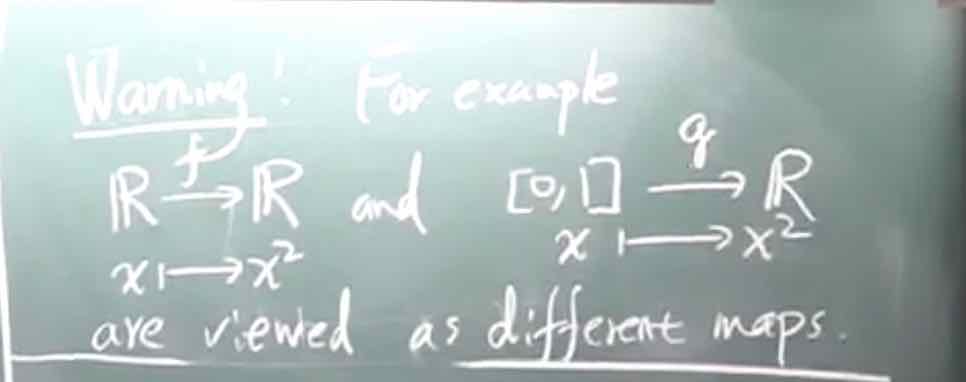 Warning! For example
f g
ℝ → ℝ and [0,1] → ℝ
x ↦ x² x ↦ x²
are viewed as different maps.